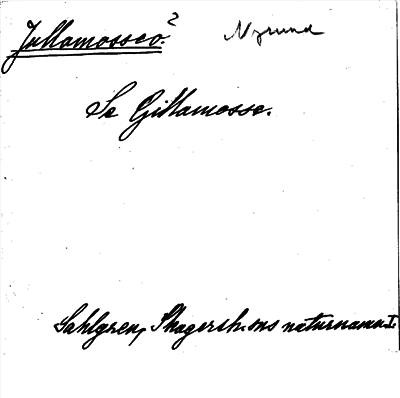 Jullamosseo.² Nysund
Se Gillamosse.
Sahlgren, Skagersh:ms naturnamn I.